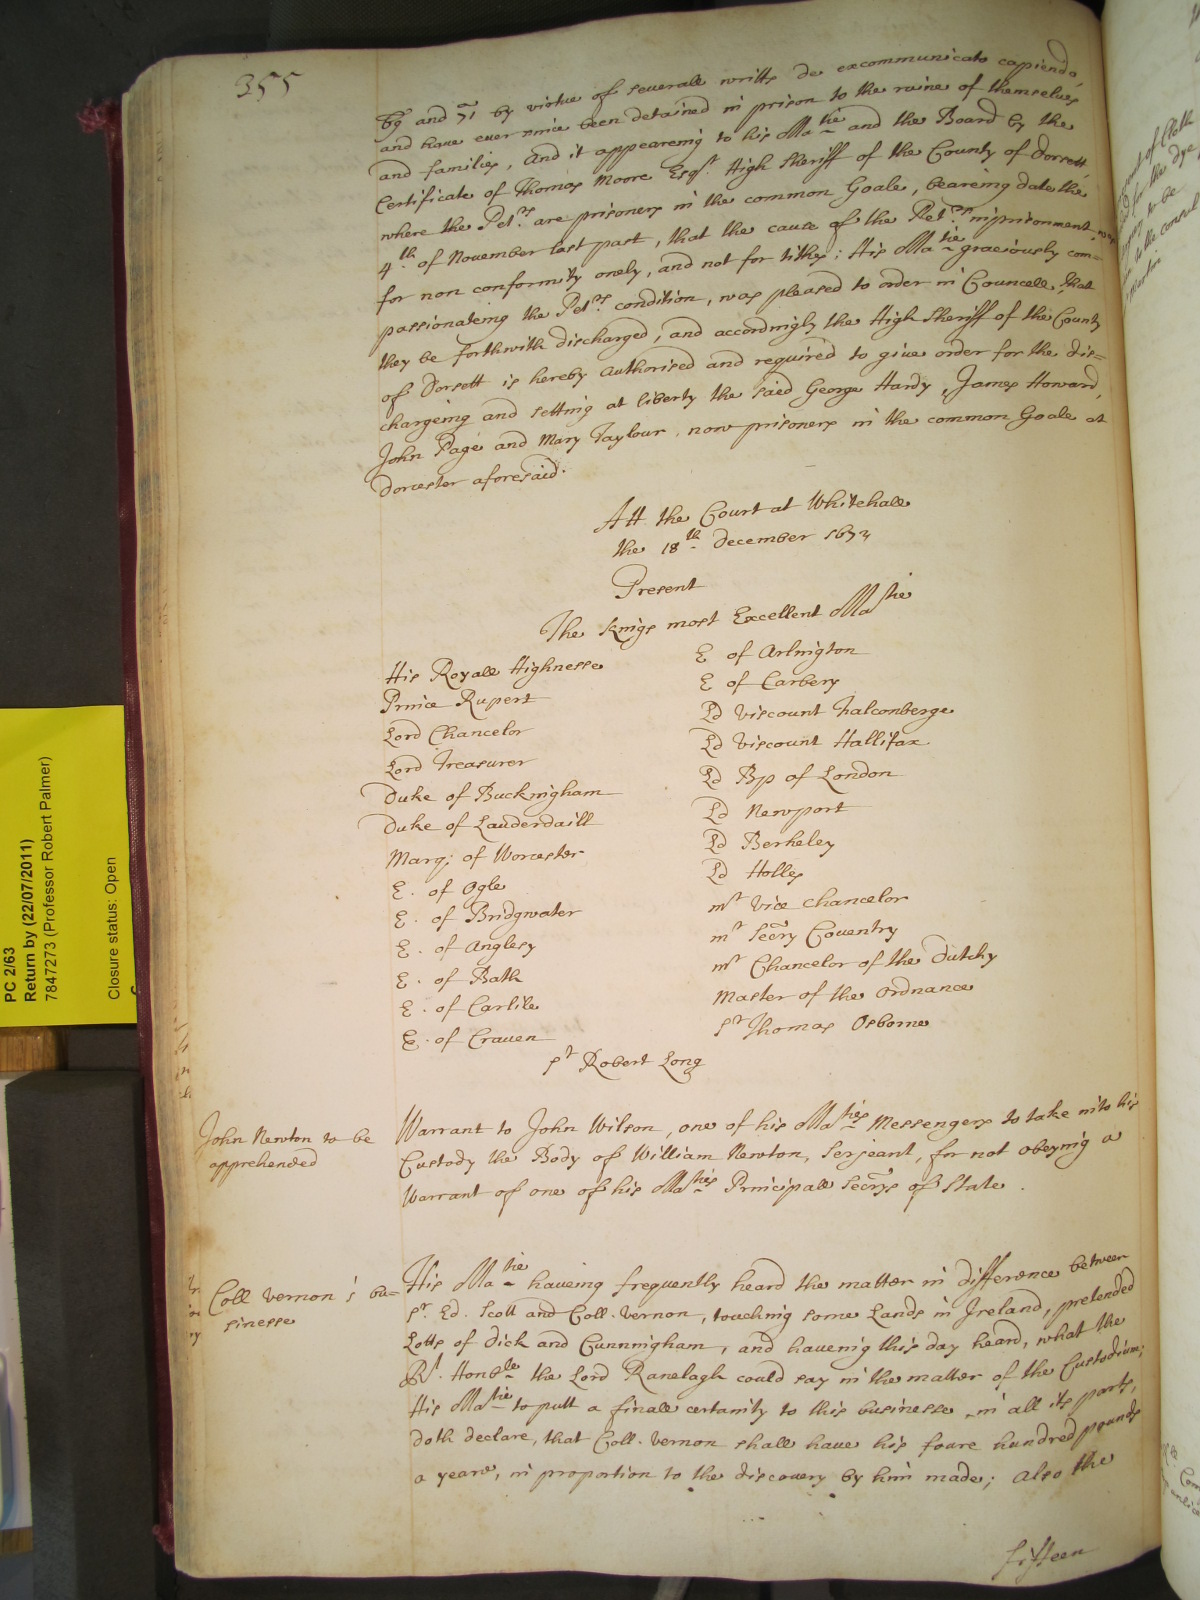 355
69 and 71 by virtue of severall writts de excommunicato capiendo,
and have ever since been detained in prison to the ruine of themselves
and families, And it appeareing to his Ma:tie and the Board by the
Certificate of Thomas Moore Esqr. High Sheriff of the County of Dorsett,
where the Petrs. are prisoners in the common Goale, beareing date the
4th. of November last past, that the cause of the Petrs. inprisonment, was
for non conformity onely, and not for tithes; His Ma:tie graciously com=
passionateing the Petrs. condition, was pleased to order in Councell, that
they be forthwith discharged, and accordingly the High Sheriff of the County
of Dorsett is hereby authorised and required to give order for the dis=
chargeing and setting at liberty the said George Hardy, James Howard,
John Page and Mary Taylour, now prisoners in the common Goale at
Dorcester aforesaid.
Att the Court at Whitehall
the 18th December 1672
Present
The Kings most Excellent Matie
His Royall Highnesse
Prince Rupert
Lord Chancelor
Lord Treasurer
Duke of Buckingham
Duke of Lauderdaill
Marq: of Worcester
E. of Ogle
E. of Bridgwater
E. of Anglesy
E. of Bath
E. of Carlile
E. of Craven
E of Arlington
E of Carbery
Ld Viscount Falconberge
Ld Viscount Hallifax
Ld Bp of London
Ld Newport
Ld Berkeley
Ld Holles
mr Vice Chancelor
mr Secry Coventry
mr Chancelor of the Dutchy
Master of the Ordnance
Sr Thomas Osborne
Sr Robert Long
John Newton to be
apprehended
Warrant to John Wilson, one of his Ma:ties Messengers to take into his
Custody the Body of William Newton, Serjeant, for not obeynig a
Warrant of one of his Ma:ties Principall Secrys of State.
Coll Vernon's bu=
sinesse
His Ma:tie haveing frequently heard the matter in difference between
Sr. Ed. Scott and Coll. Vernon, touching some Lands in Ireland, pretended
Lotts of Dick and Cunningham, and haveing this day heard, what the
Rt. Honble the Lord Ranelagh could say in the matter of the Custodium;
His Ma:tie to putt a finall certainty to this businesse in all its parts,
doth declare, that Coll. Vernon shall have his foure hundred pounds
a yeare, in proportion to the discovery by him made; also the
fifteen
PC 2/63
Return by (22/07/2011)
7847273 (Professor Robert Palmer)
Closure status: Open